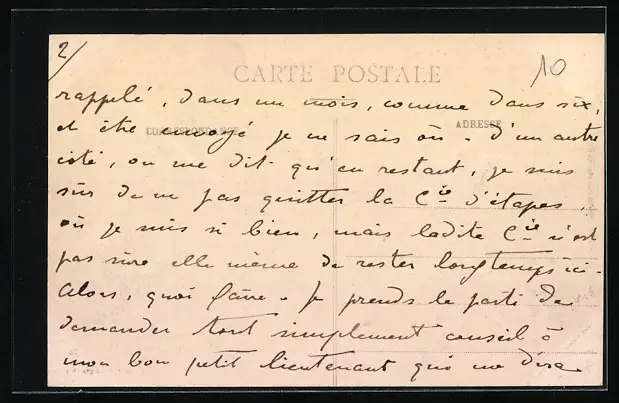 2/
10
CARTE POSTALE
rappelé, dans un mois, comme dans six,
CORRESPONDANCE
ADRESSE
et être envoyé je ne sais où. D'un autre
côté, on me dit qu'en restant, je suis
sûr de ne pas quitter la Cie d'étapes,
où je suis si bien, mais ladite Cie n'est
pas sûre elle même de rester longtemps ici.
Alors, quoi faire. Je prends le parti de
demander tout simplement conseil à
mon bon petit lieutenant qui me dira